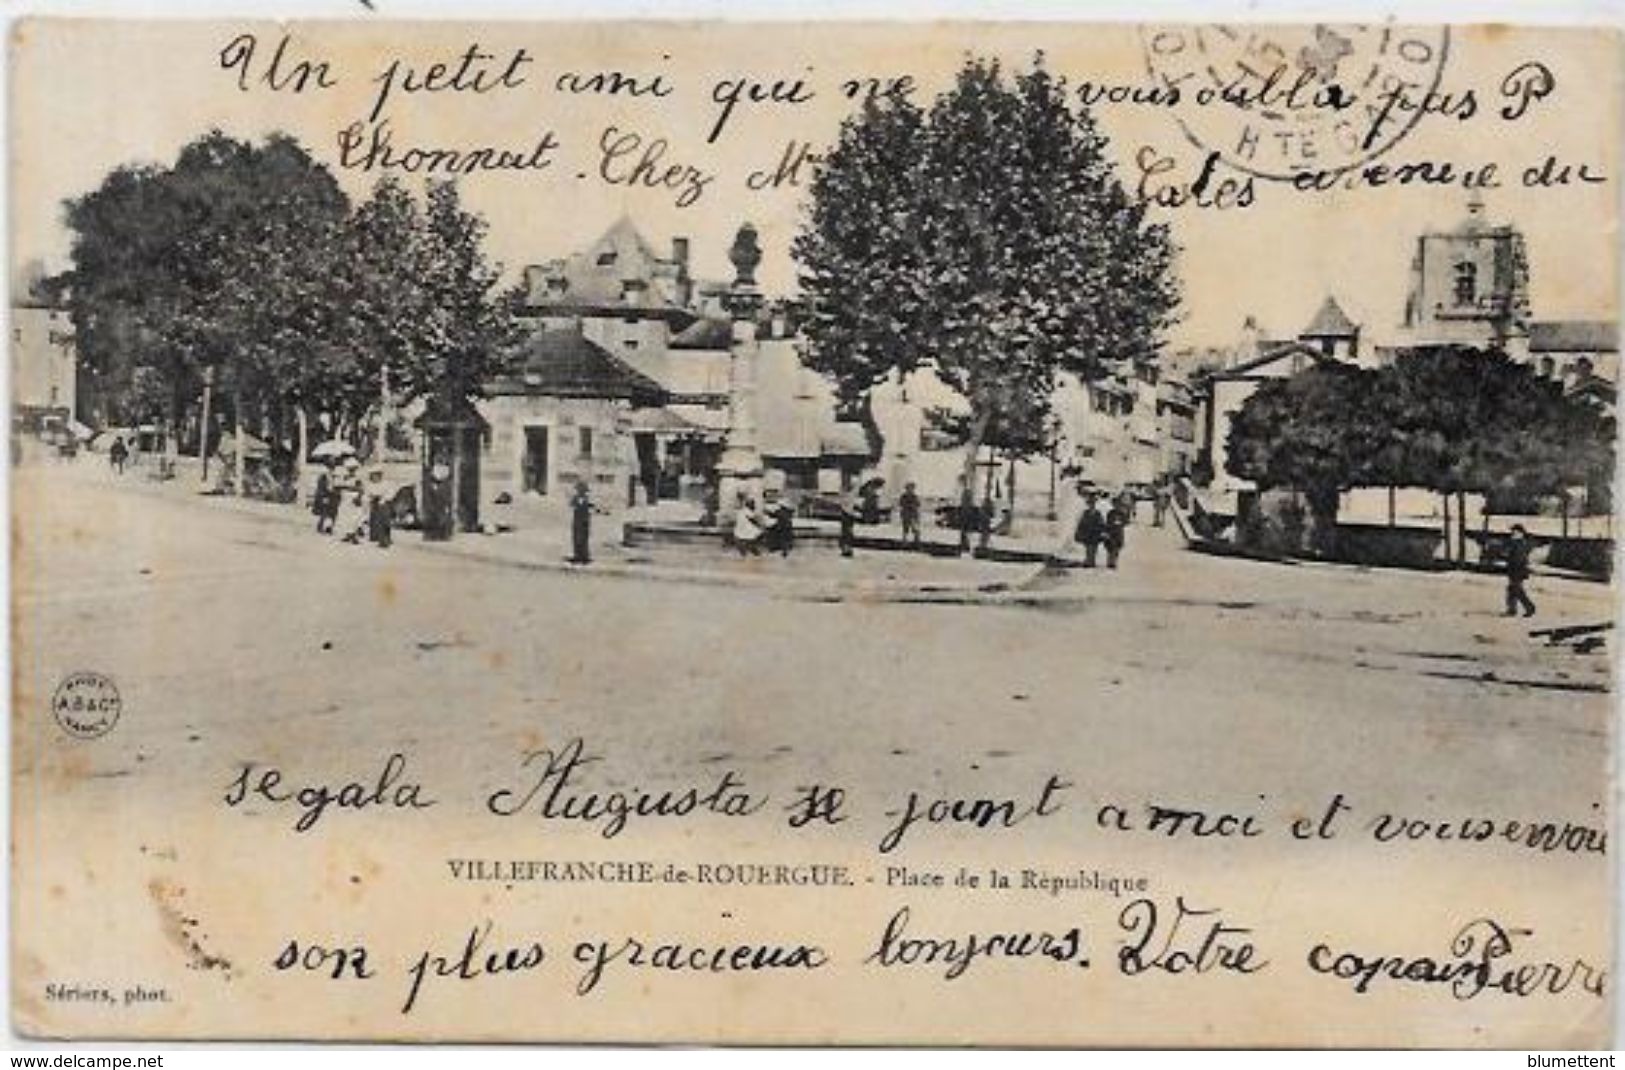 Un petit ami qui ne vous oublia pas P
Thonnat. Chez Mr Cales avenue du
H TE G
PHOT
A.B & Cie
NANCY
segala Augusta se joint a moi et vous envoie
VILLEFRANCHE-de-ROUERGUE. - Place de la République
son plus gracieux bonjours. Votre copain Pierre
Sériers, phot.
delcampe.net
blumettent